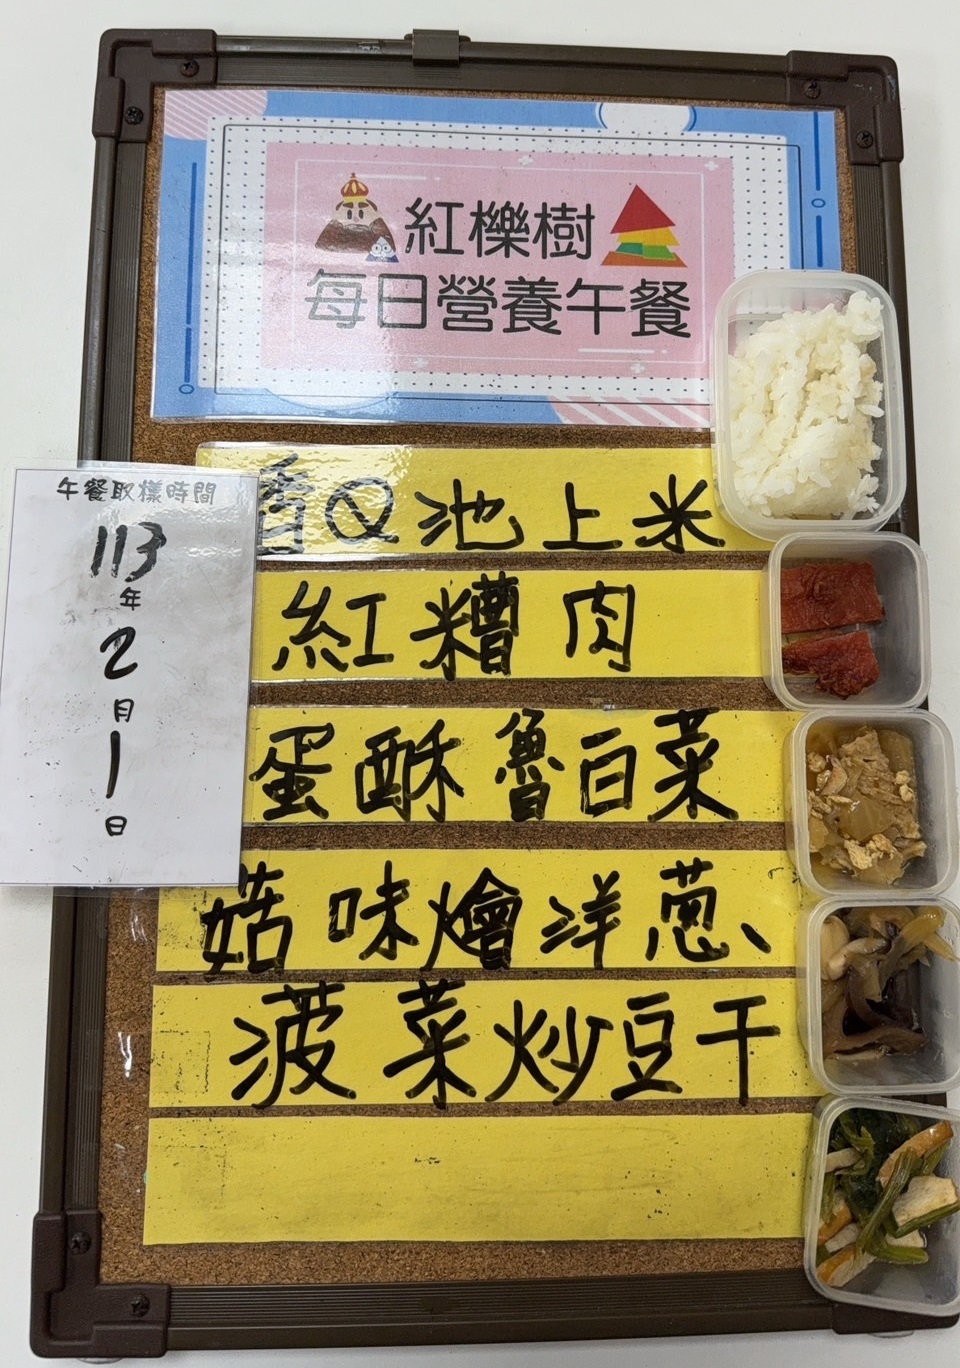 紅櫟樹
每日營養午餐
午餐取樣時間
113
年
2
月
1
日
香Q池上米
紅糟肉
蛋酥魯白菜
菇味燴洋蔥、
菠菜炒豆干